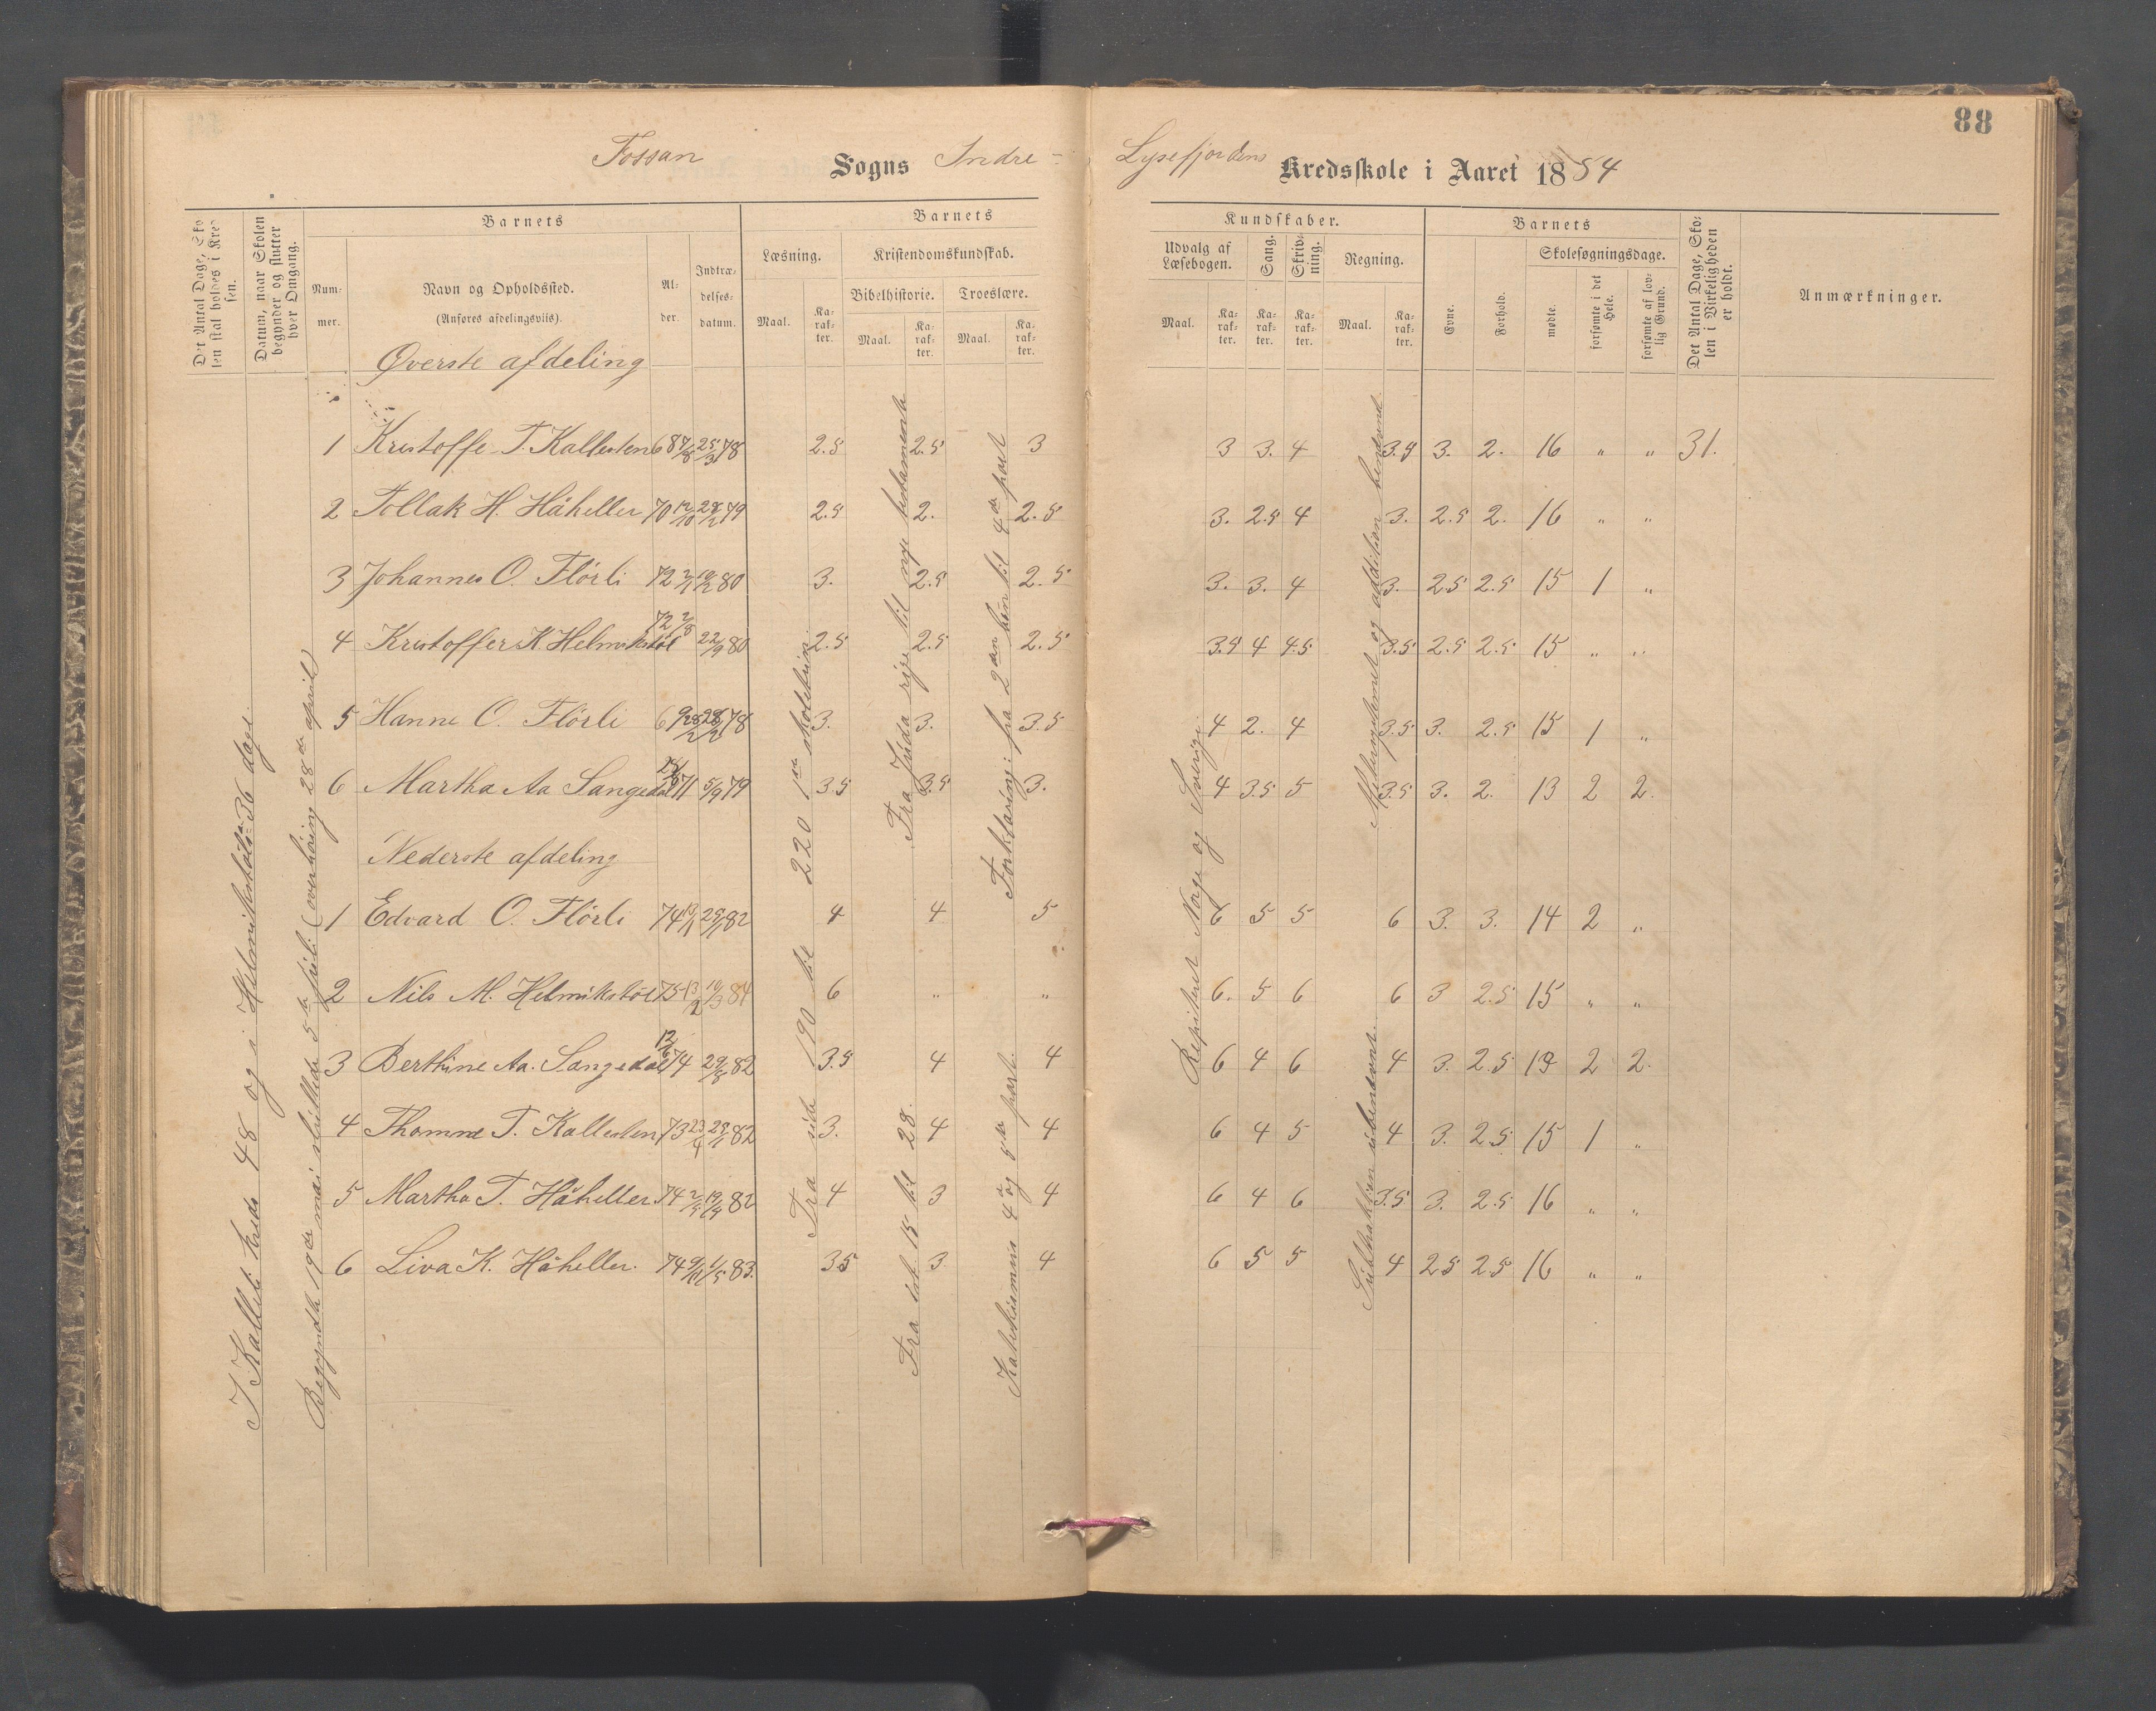 88
Fossan Sogns Indre-
Lysefjordens Kredsskole i Aaret 1884
Det Antal Dage, Skolen skal holdes i Kredsen.
Datum, naar Skolen begynder og slutter hver Omgang.
Barnets
Nummer.
Navn og Opholdssted.
(Anføres afdelingsviis).
Alder.
Indtrædelsesdatum.
Barnets
Læsning.
Kristendomskundskab.
Bibelhistorie.
Troeslære.
Maal.
Karakter.
Maal.
Karakter.
Maal.
Karakter.
Kundskaber.
Udvalg af Læsebogen.
Sang.
Skrivning.
Regning.
Maal.
Karakter.
Karakter.
Karakter.
Maal.
Karakter.
Barnets
Evne.
Forhold.
Skolesøgningsdage.
mødte.
forsømte i det Hele.
forsømte af lovlig Grund.
Det Antal Dage, Skolen i Virkeligheden er holdt.
Anmærkninger.
Øverste afdeling
1 Kristoffe T. Kallesten 68 7/8 25/3 78 2.5 2.5 3 3 3. 4 3.5 3. 2. 16 " " 31.
2 Tollak H. Håheller 70 12/10 28/2 79 2.5 2. 2.5 3. 2.5 4 3. 2.5 2. 16 " "
3 Johannes O. Flörli 72 80 3. 2.5 2.5 3. 3. 4 3. 2.5 2.5 15 1 "
4 Kristoffer K. Helmikstöl 72 2/8 22/9 80 2.5 2.5 2.5 3.5 4 4.5 3.5 2.5 2.5 15 " "
5 Hanne O. Flörli 69 28/2 78 3. 3. 3.5 4 2. 4 3.5 3. 2.5 15 1 "
6 Martha Aa Sangedal 71 5/9 79 3.5 3.5 3. 4 3.5 5 3.5 3. 2. 13 2 2.
Nederste afdeling
1 Edvard O. Flörli 74 13/1 25/1 82 4 4 5 6 5 5 6 3. 3. 14 2 "
2 Nils M. Helmikstöl 75 13/2 10/3 84 6 " " 6. 5 6 6 3 2.5 15 " "
3 Berthine Aa. Sangedal 12/6 74 29/8 82 3.5 4 4 6 4 6 4 3. 2.5 13 2 2.
4 Thomne T. Kallesten 73 23/4 28/1 82 3. 4 4 6 4 5 4 3. 2.5 15 1 "
5 Martha T. Håheller 74 19/4 82 4 3 4 6 4 6 3.5 3. 2.5 16 " "
6 Liva K. Håheller. 74 9/11 1/5 83. 3.5 3. 4 6 5 5 4 2.5 2.5 16 " "
I Kalleste kreds 48 og i Helmikstöls 36 dage.
Begyndte 19de mai sluttede 5te juli (overhöring 28de april)
Fra side 190 til 220 1ste skoletrin.
Fra Juda rige til nye testamente
Fra tst 15 til 28.
Forklaring: fra 2den bön til 4de part
Katekismus 4de og 5te part.
Repiteret Norge og Sverige.
Metersystemet og addition benævnt
Subtraktion ubenævnt.